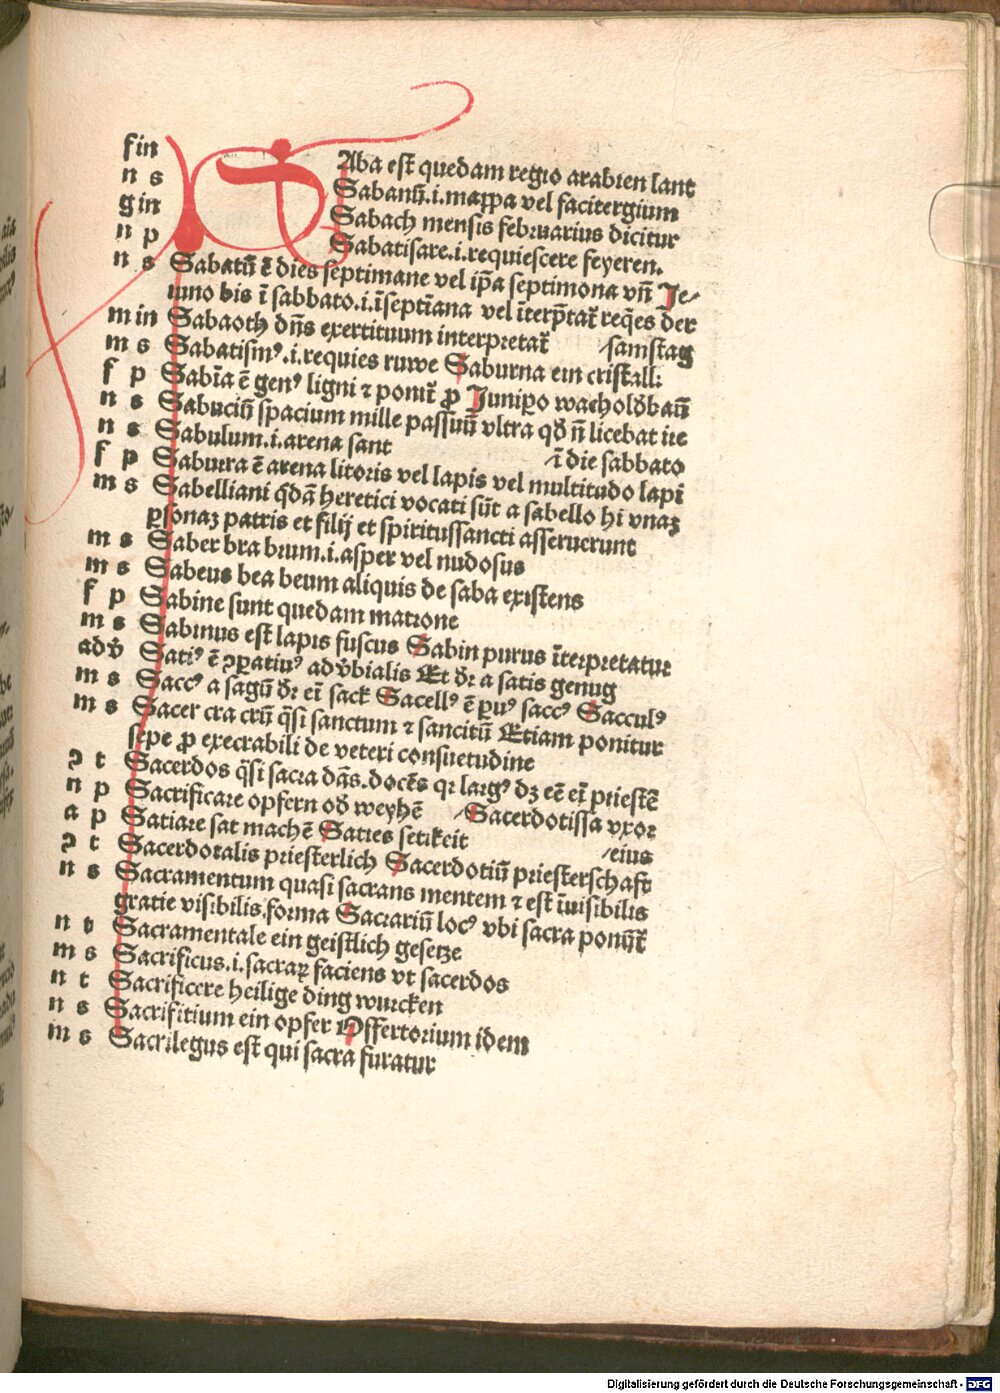 f in Aba est quedam regio arabien lant
n s Sabanū.i.mappa vel facitergium
g in Sabach mensis februarius dicitur
n p Sabatisare.i.requiescere feyeren.
n s Sabatū ē dies septimane vel ip̄a septimona vn̄ Je⸗
iuno bis ī sabbato.i.ī septīana vel īterp̄tat̄ req̄es der
m in Sabaoth dn̄s exertituum interpretat̄ samstag
m s Sabatism⁹.i.requies ruwe Saburna ein cristall:
f p Sabīa ē gen⁹ ligni ⁊ ponit̄ ꝓ Junipo wacholdbaū
n s Sabuciū spacium mille passuū vltra qd̄ n̄ licebat ire
n s Sabulum.i.arena sant ī die sabbato
f p Saburra ē arena litoris vel lapis vel multitudo lapī
m s Sabelliani q̄dā heretici vocati sūt a sabello hi vnaꝫ
ꝑsonaꝫ patris et filij et spiritussancti asseruerunt
m s Saber bra brum.i.asper vel nudosus
m s Sabeus bea beum aliquis de saba existens
f p Sabine sunt quedam matrone
m s Sabinus est lapis fuscus Sabin purus īterpretatur
adv̄ Sati⁹ ē ꝯꝑatiu⁹ adv̄bialis Et dr̄ a satis genug
m s Sacc⁹ a sagū dr̄ eī sack Sacell⁹ ē ꝑu⁹ sacc⁹ Saccul⁹
m s Sacer cra crū q̄si sanctum ⁊ sancitū Etiam ponitur
sepe ꝓ execrabili de veteri consuetudine
ꝯ t Sacerdos q̄si sacra dās.docēs qꝛ larg⁹ dꝫ eē eī priestē
n p Sacrificare opfern od weyhē Sacerdotissa vxor
a p Satiare sat machē Saties setikeit eius
ꝯ t Sacerdotalis priesterlich Sacerdotiū priesterschaft
n s Sacramentum quasi sacrans mentem ⁊ est īuisibilis
gratie visibilis.forma Sacrariū loc⁹ vbi sacra ponūt̄
n t Sacramentale ein geistlich gesetze
m s Sacrificus.i.sacraꝝ faciens vt sacerdos
n t Sacrificere heilige ding wurcken
n s Sacrifitium ein opfer Offertorium idem
m s Sacrilegus est qui sacra furatur
Digitalisierung gefördert durch die Deutsche Forschungsgemeinschaft - DFG